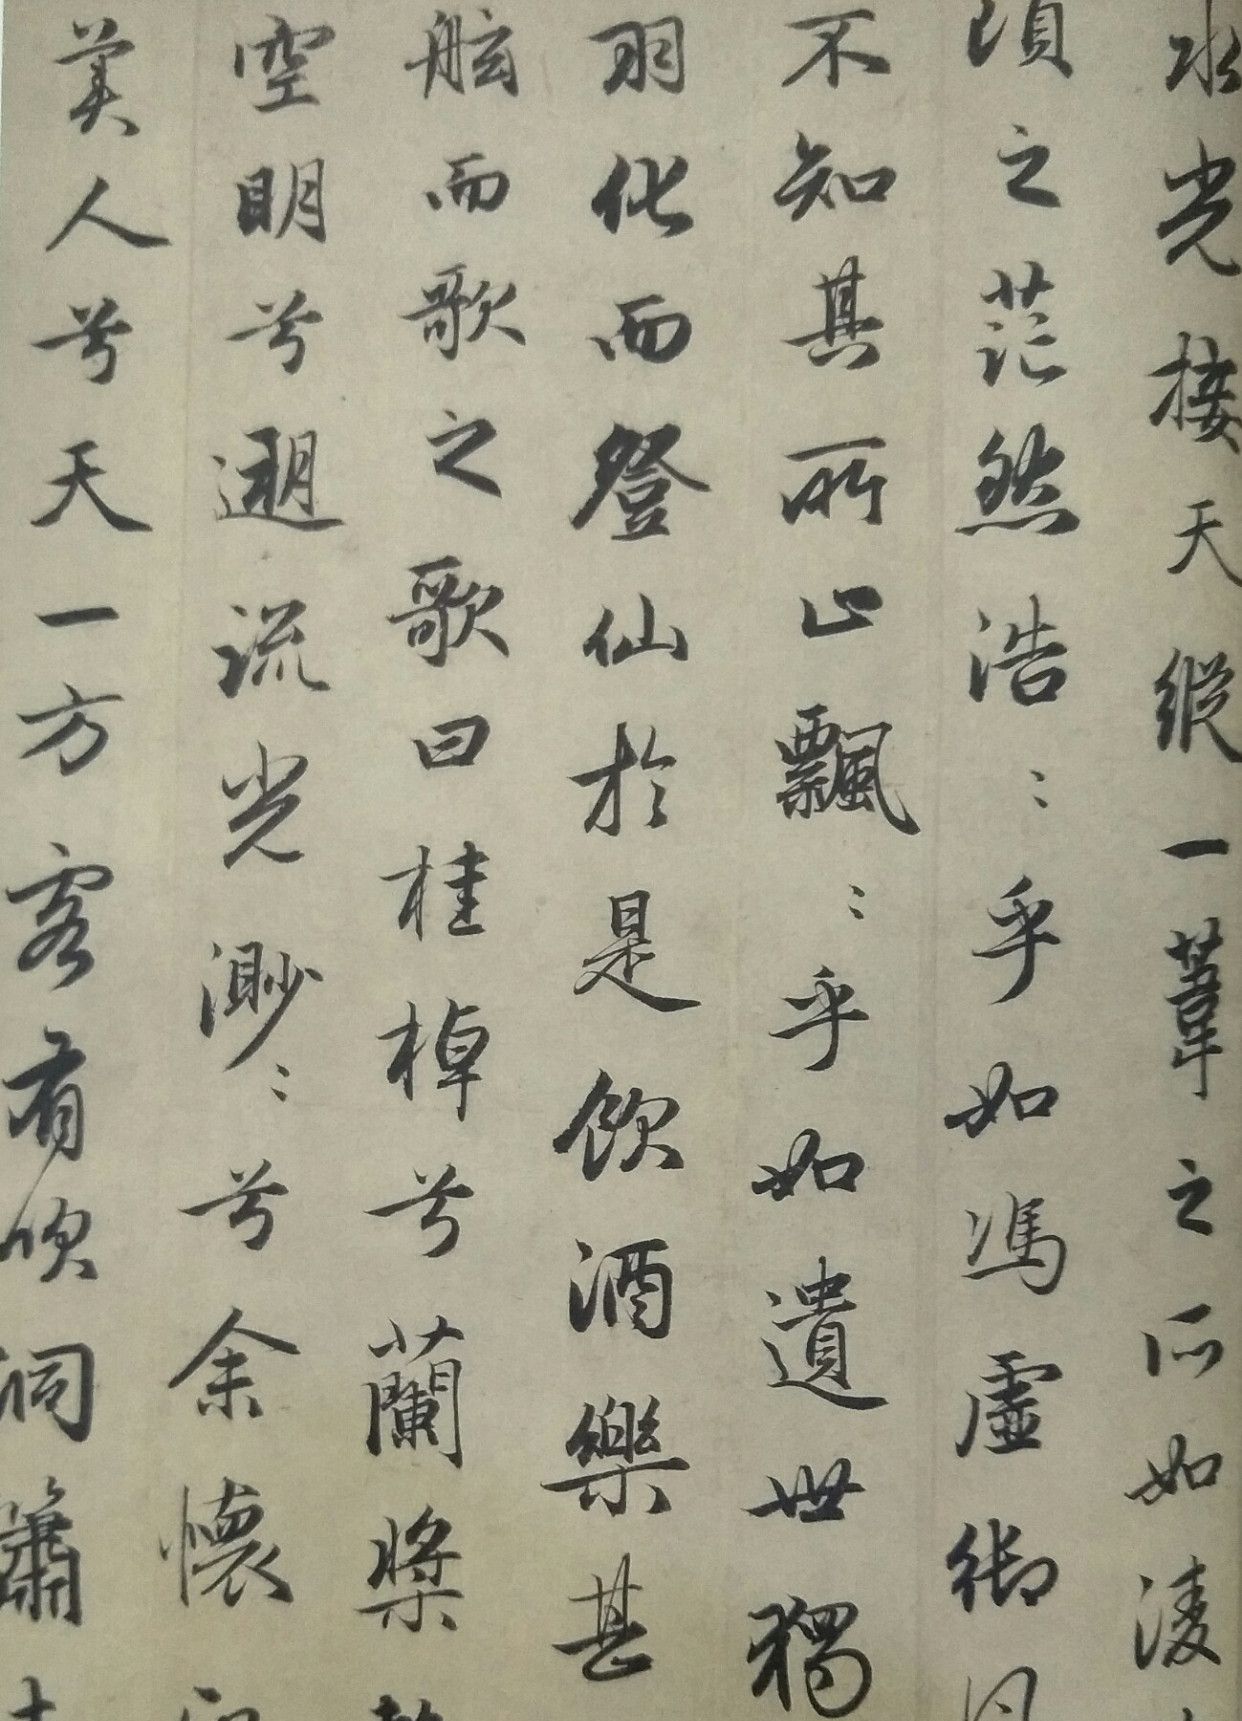 水光接天縱一葦之所如凌
頃之茫然浩〻乎如馮虛御
不知其所止飄〻乎如遺世獨
羽化而登仙於是飲酒樂甚
舷而歌之歌曰桂棹兮蘭槳
空明兮遡流光渺〻兮余懷
美人兮天一方客有吹洞簫